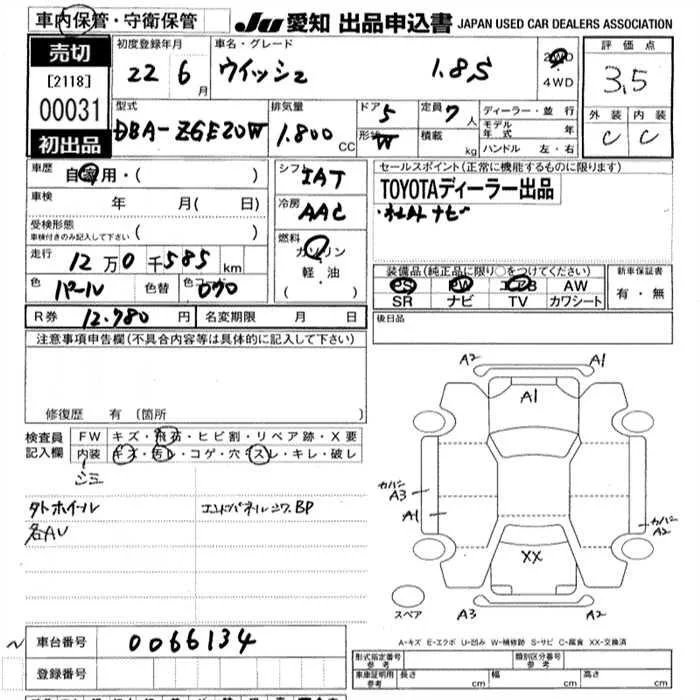 車内保管・守衛保管
JU 愛知 出品申込書 JAPAN USED CAR DEALERS ASSOCIATION
売切
[2118]
00031
初出品
初度登録年月
22 6月
車名・グレード
ウイッシュ 1.8S
2WD
・
4WD
評価点
3.5
型式
DBA-ZGE20W
排気量
1.800 CC
ドア 5
形状 W
定員 7人
積載 kg
ディーラー・並行
モデル年式 年
ハンドル 左・右
外装 内装
C C
車歴 自家用・( )
車検 年 月( 日)
受検形態
車検付きのみ記入して下さい ( )
走行 12万0千585km
色 パール 色替 色コード 070
シフト IAT
冷房 AAC
燃料
ガソリン
軽・油
( )
セールスポイント(正常に機能するものに限ります)
TOYOTAディーラー出品
・社外ナビ
装備品(純正品に限り○をつけてください)
PS PW エアB AW
SR ナビ TV カワシート
新車保証書
有・無
R券 12.780円 名変期限 月 日
後日品
注意事項申告欄(不具合内容等は具体的に記入して下さい)
修復歴 有 (箇所 )
検査員
記入欄
FW キズ・飛石・ヒビ割・リペア跡・X要
内装 キズ・汚レ・コゲ・穴・スレ・キレ・破レ
シミ
タトホイール
各AU
エンドパネルシワ、BP
A2 A1
A1
カバン
A3
A1
カバン
A2
XX
スペア
A3 A2
A-キズ E-エクボ U-凹み W-補修跡 S-サビ C-腐食 XX-交換済
車台番号 0066134
登録番号
形式指定番号
参考
類別区分番号
参考
車庫証明用
参考
長さ cm 幅 cm 高さ cm